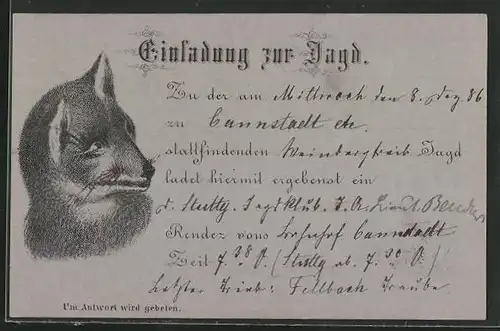 Einladung zur Jagd.
Zu der am Mittwoch den 8. Dez. 86
zu Cannstadt etc.
stattfindenden Weinbergtreib Jagd
ladet hiermit ergebenst ein
d. Stuttg. Jagdklub. I. A.
Rendez vous Bahnhof Cannstadt
Zeit 7.38 (Stuttg ab. 7.30
Letzter Trieb: Fellbach Traube
Um Antwort wird gebeten.